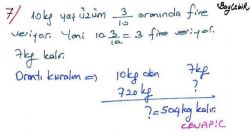 Baylebik
7) 10kg yaş üzüm 3/10 oranında fire
veriyor. Yani 10·3/10 = 3 fire veriyor.
7kg kalır.
Orantı kuralım => 10kg dan 7kg
720kg ?
? = 504kg kalır.
CEVAP: C